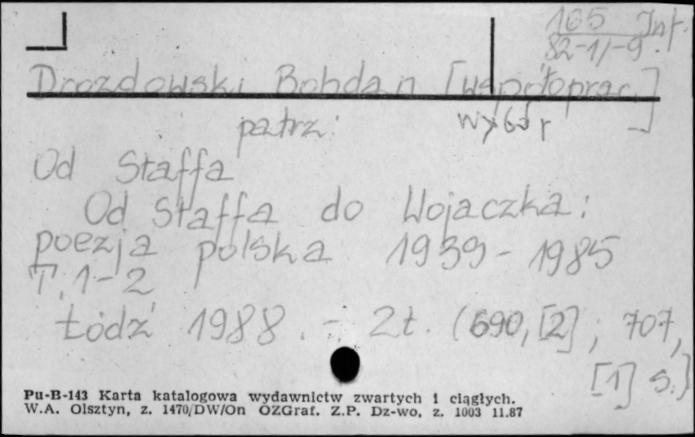 165 Inf.
82-1/-9
Drozdowski Bohdan [współoprac.]
patrz: wybór
Od Staffa
Od Staffa do Wojaczka :
poezja polska 1939 - 1985
T. 1 - 2
Łódź 1988. - 2t. (690, [2] ; 707,
[1] s.)
Pu-B-143 Karta katalogowa wydawnictw zwartych i ciągłych.
W.A. Olsztyn, z. 1470/DW/On OZGraf. Z.P. Dz-wo, z. 1003 11.87